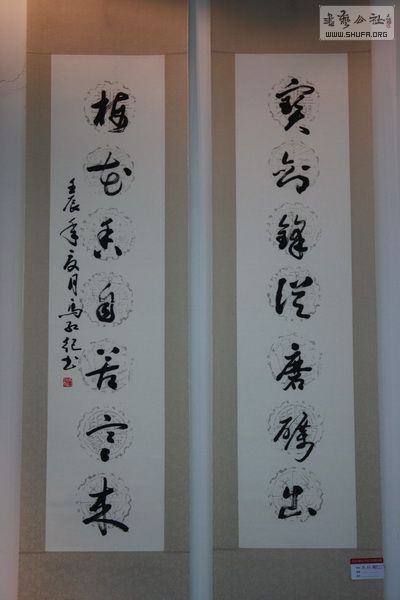 寳劍鋒從磨礪出
梅花香自苦寒來
壬辰年夏月馬紅纪书
書藝公社
WWW.SHUFA.ORG